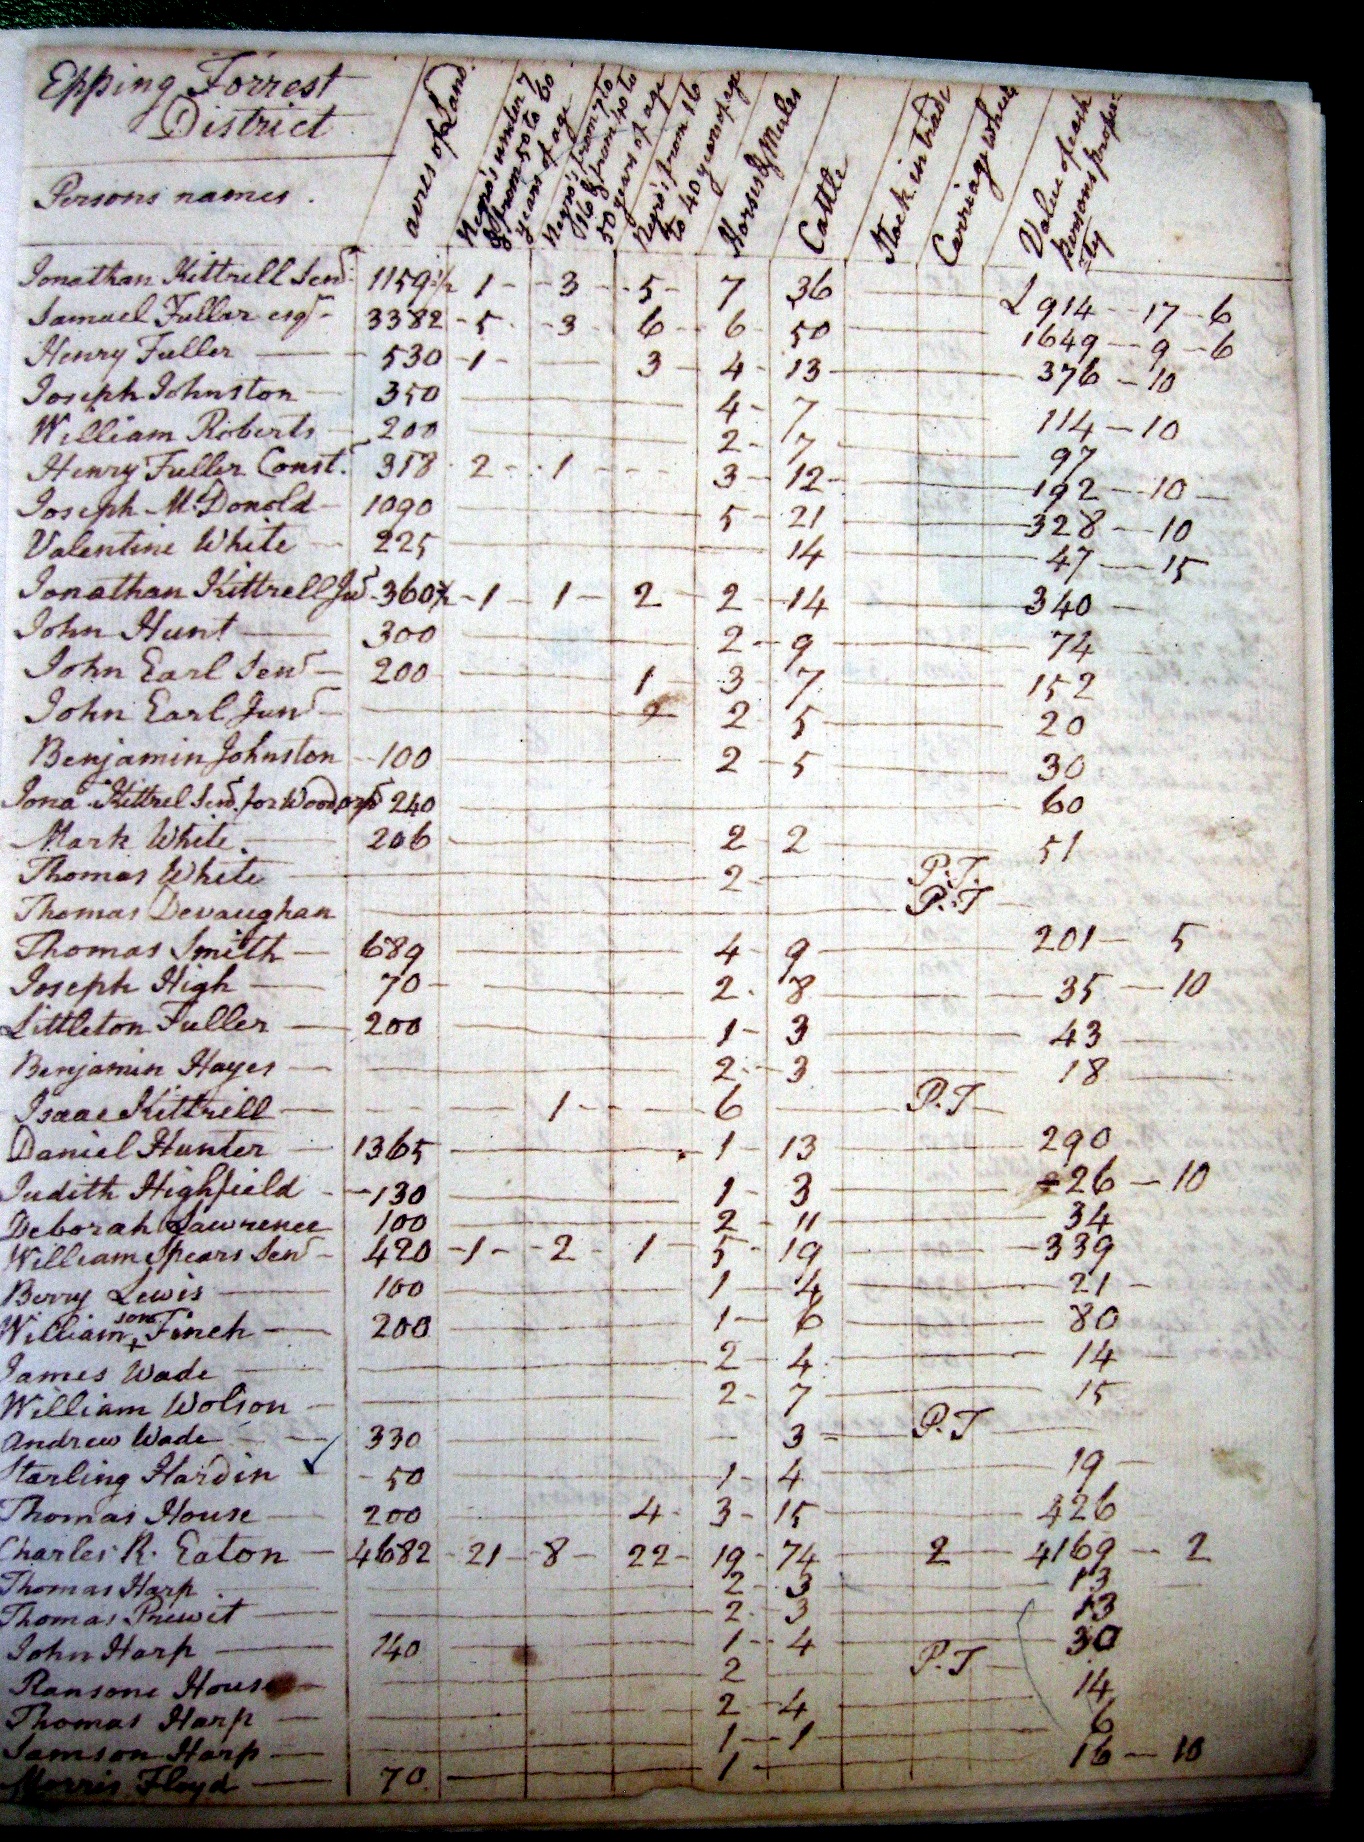 Epping Forrest
District
Persons names.
acres of Land.
Negro's under 7 & from 50 to 60 years of age
Negro's from 7 to 16 & from 40 to 50 years of age
Negro's from 16 to 40 years of age
Horses & Mules
Cattle
Stock in trade
Carriage Wheels
Value of each persons proper=ty
Jonathan Kittrell Senr. 1159½ 1 3 5 7 36 £ 914 17 6
Samuel Fuller esqr 3382 5 3 6 6 50 1649 9 6
Henry Fuller 530 1 3 4 13 376 10
Joseph Johnston 350 4 7 114 10
William Roberts 200 2 7 97
Henry Fuller Const. 318 2 1 3 12 192 10
Joseph McDonold 1090 5 21 328 10
Valentine White 225 14 47 15
Jonathan Kittrell Jur 360½ 1 1 2 2 14 340
John Hunt 300 2 9 74
John Earl Senr 200 1 3 7 152
John Earl Junr 2 5 20
Benjamin Johnston 100 2 5 30
Jona. Kittrel Senr. for Wood orps 240 60
Mark White 206 2 2 51
Thomas White 2 P.T.
Thomas Devaughan P.T
Thomas Smith 689 4 9 201 5
Joseph High 70 2 8 35 10
Littleton Fuller 200 1 3 43
Benjamin Hayes 2 3 18
Isaac Kittrell 1 6 P.T
Daniel Hunter 1365 1 13 290
Judith Highfield 130 1 3 26 10
Deborah Lawrence 100 2 11 34
William Spears Senr 420 1 2 1 5 19 339
Berry Lewis 100 1 4 21
William son Finch 200 1 6 80
James Wade 2 4 14
William Wolson 2 7 15
Andrew Wade 330 3 P.T
Starling Hardin 50 1 4 19
Thomas House 200 4 3 15 426
Charles R. Eaton 4682 21 8 22 19 74 2 4169 2
Thomas Harp 2 3 13
Thomas Prewit 2 3 13
John Harp 140 1 4 30
Ransone House 2 P.T
Thomas Harp 2 4 14
Samson Harp 1 1 6
Morris Floyd 70 1 16 10